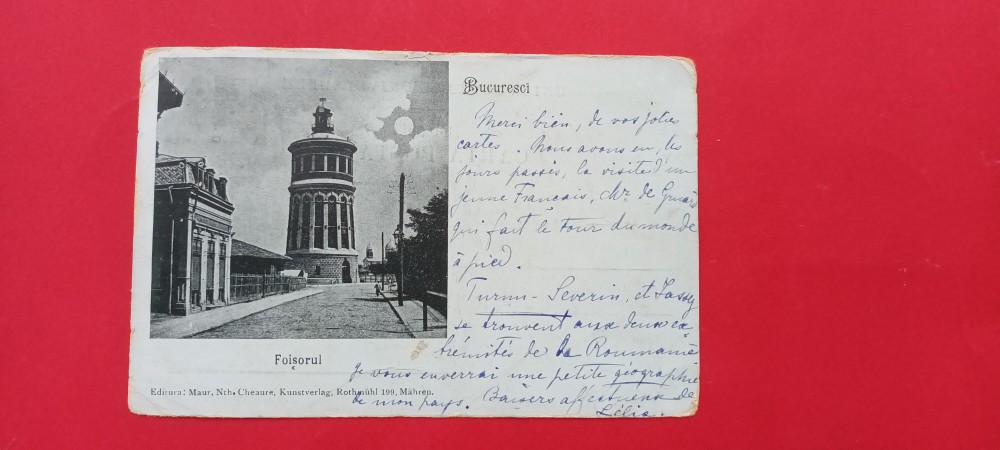 Bucuresci
Merci bien, de vos jolies
cartes. Nous avons eu, les
jours passés, la visite d'un
jeune Français, Mr. de
qui fait le tour du monde
à pied.
Turnu-Severin, et Jassy
se trouvent aux deux ex
trémités de la Roumanie
je vous enverrai une petite géographie
de mon pays. Baisers affectueux de
Lélia.
Foişorul
Editura: Maur, Nth. Cheaure, Kunstverlag, Rothmühl 199, Mähren.